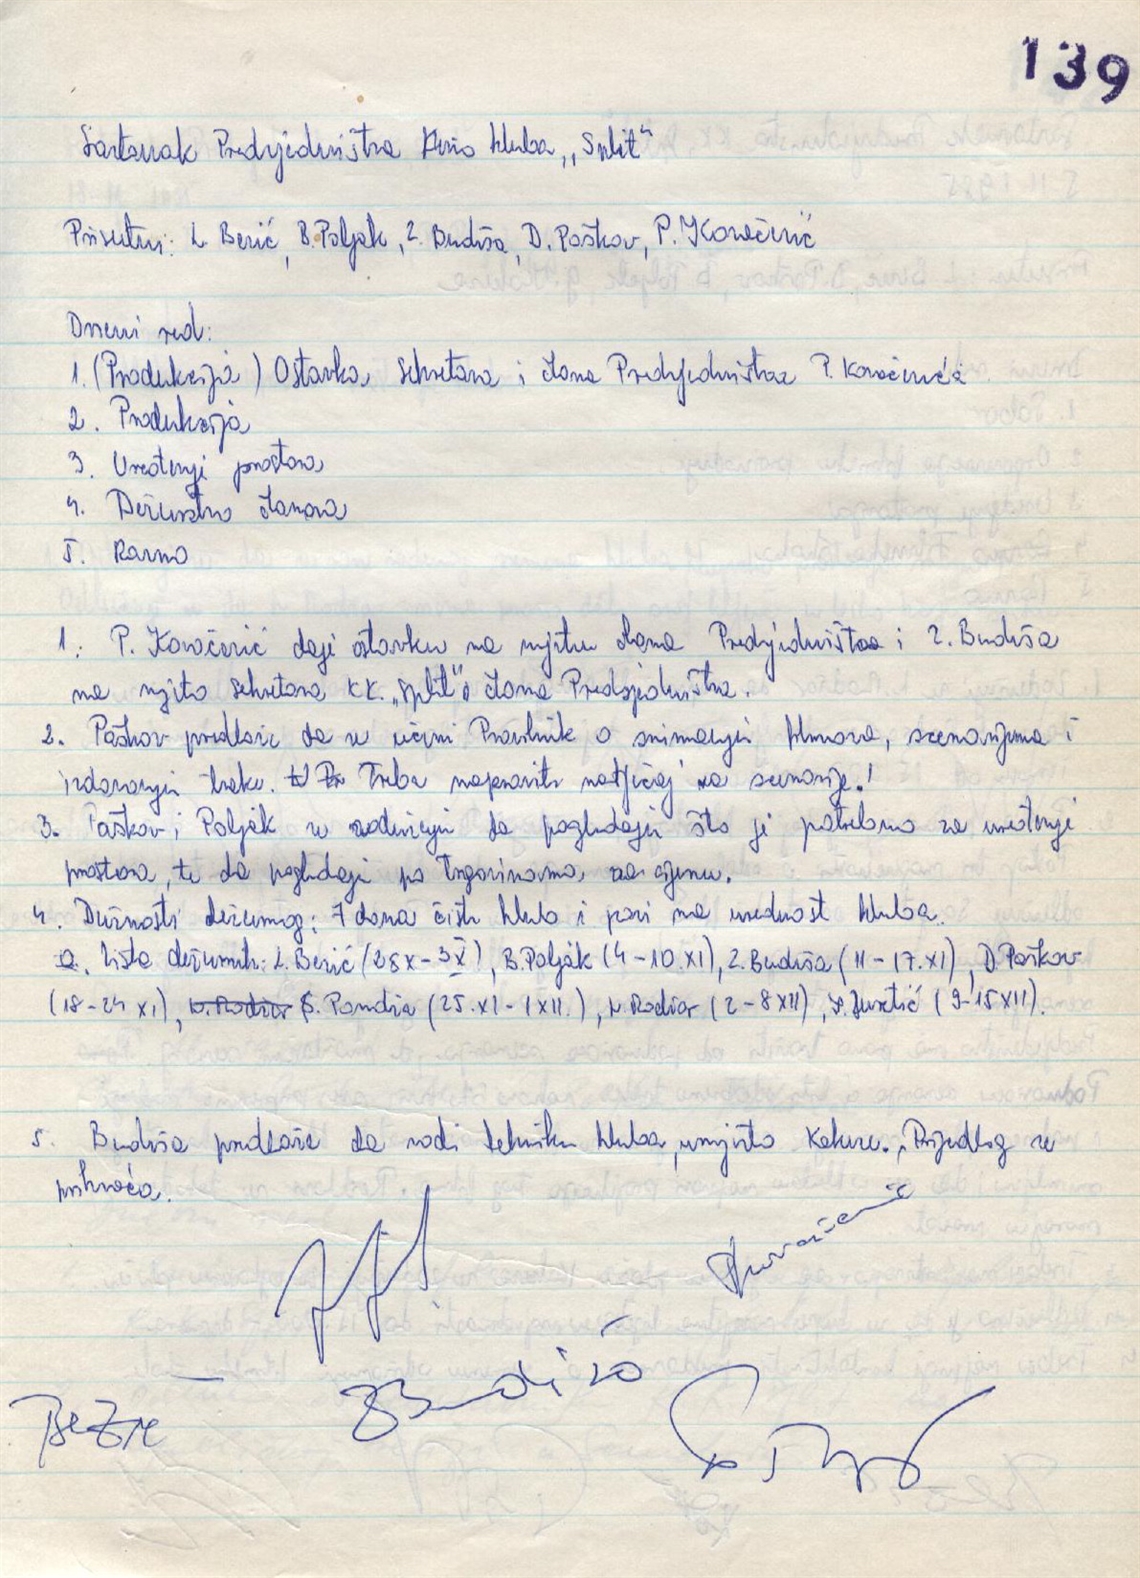 139
Sastanak Predsjedništva Kino kluba „Split“
Prisutni: L. Bezić, B. Poljak, Z. Budiša, D. Paškov, P. Kovačević
Dnevni red:
1. (Produkcija) Ostavka sekretara i člana Predsjedništva P. Kovačevića
2. Produkcija
3. Uređenje prostora
4. Dežurstvo članova
5. Razno
1. P. Kovačević daje ostavku na mjestu člana Predsjedništva i Z. Budiša
na mjesto sekretara KK. „Split“ i člana Predsjedništva.
2. Paškov predlaže da se učini Pravilnik o snimanju filmova, scenarijima i
izdavanju trake. Treba napraviti natječaj za scenarije.!
3. Paškov i Poljak se zadužuju da pogledaju što je potrebno za uređenje
prostora, te da pogledaju po trgovinama za cijenu.
4. Dužnosti dežurnog: 7 dana čisti klub i pazi na urednost kluba.
a. Lista dežurnih: L. Bezić (28X-3X), B. Poljak (4-10.XI), Z. Budiša (11-17.XI), D. Paškov
(18-24 XI), N. Rodier S. Pandža (25.XI-1XII.), N. Rodier (2-8XII), (9-15XII).
5. Budiša predlaže da vodi tehniku kluba, umjesto Kekeza. Prijedlog se
prihvaća.
Kovačević
ZBudiša
Bezić